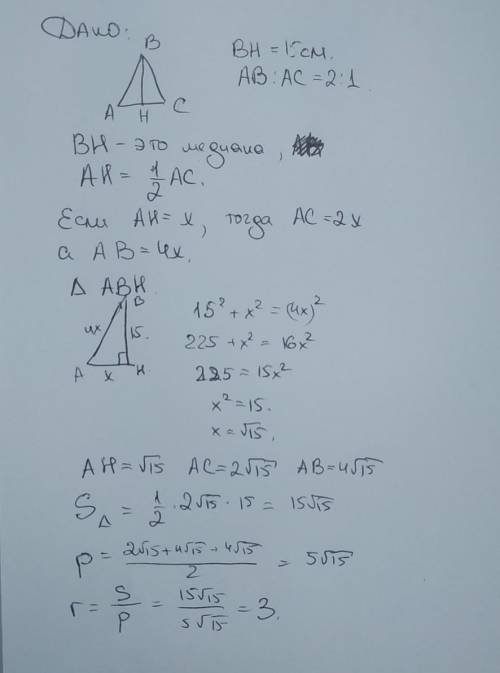 Дано:
B
A H C
BH = 15 см.
AB : AC = 2 : 1
BH - это медиана,
AH = 1/2 AC.
Если AH = x, тогда AC = 2x
а AB = 4x.
Δ ABH.
B
4x 15.
A x H
15² + x² = (4x)²
225 + x² = 16x²
225 = 15x²
x² = 15.
x = √15.
AH = √15 AC = 2√15 AB = 4√15
S△ = 1/2 · 2√15 · 15 = 15√15
p = (2√15 + 4√15 + 4√15)/2 = 5√15
r = S/p = 15√15/5√15 = 3.